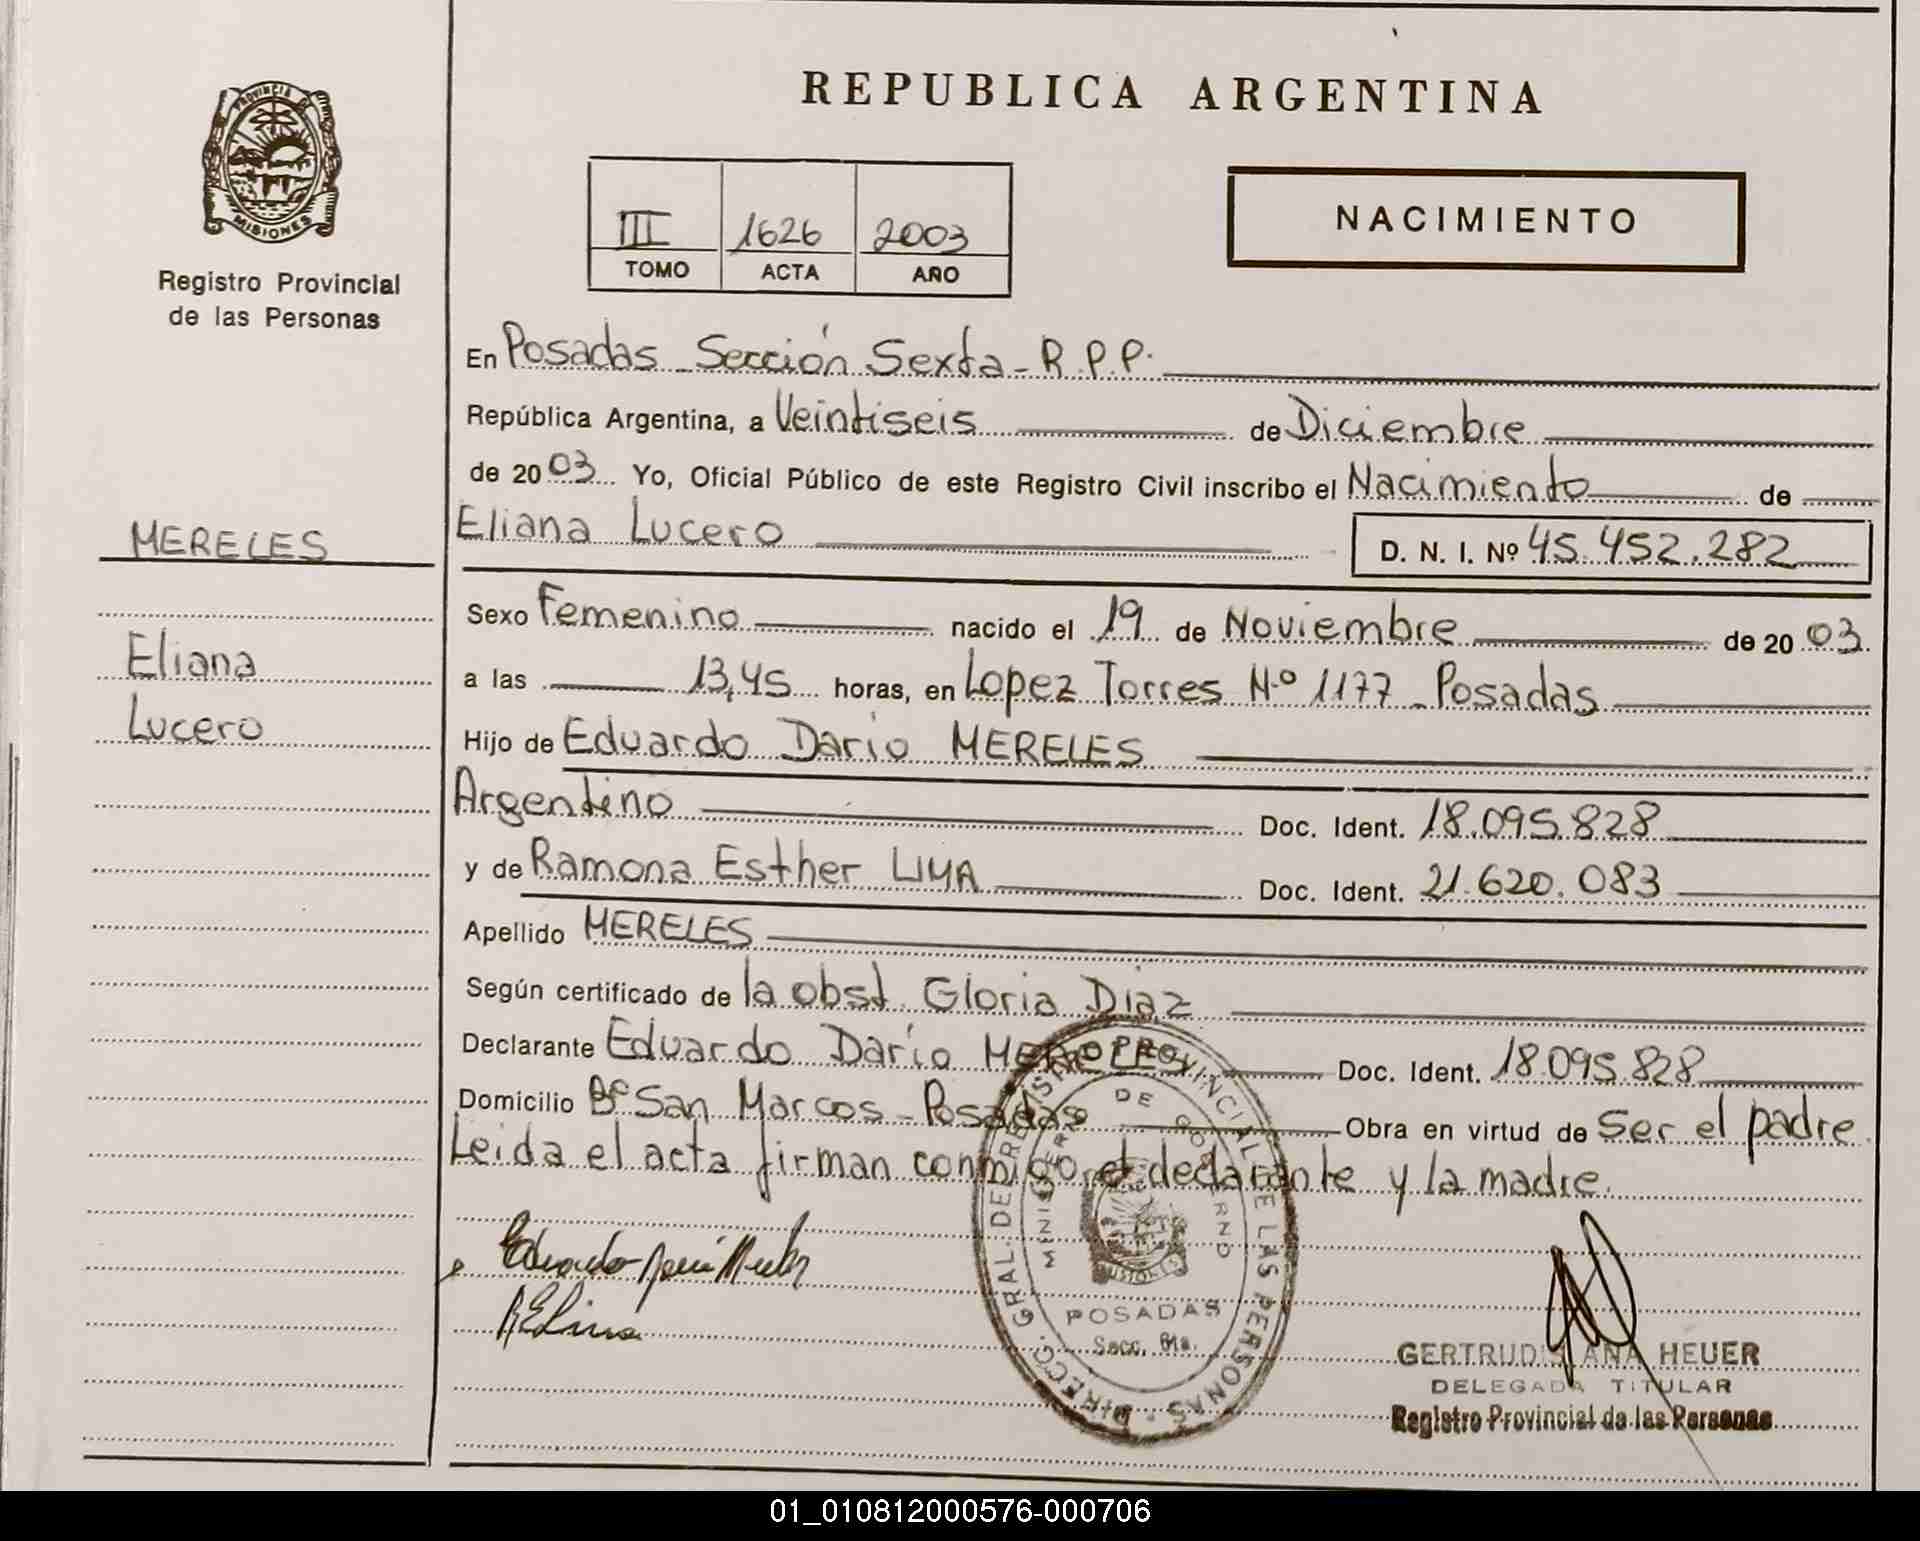 PROVINCIA DE
MISIONES
Registro Provincial
de las Personas
MERELES
Eliana
Lucero
REPUBLICA ARGENTINA
III 1626 2003
TOMO ACTA AÑO
NACIMIENTO
En Posadas - Sección Sexta - R.P.P.
República Argentina, a Veintiseis de Diciembre
de 2003 Yo, Oficial Público de este Registro Civil inscribo el Nacimiento de
Eliana Lucero D. N. I. Nº 45.452.282
Sexo Femenino nacido el 19 de Noviembre de 2003
a las 13,45 horas, en Lopez Torres Nº 1177 - Posadas
Hijo de Eduardo Dario MERELES
Argentino Doc. Ident. 18.095.828
y de Ramona Esther LIMA Doc. Ident. 21.620.083
Apellido MERELES
Según certificado de la obst. Gloria Diaz
Declarante Eduardo Darío MERELES Doc. Ident. 18.095.828
Domicilio Bº San Marcos - Posadas Obra en virtud de Ser el padre
Leida el acta firman conmigo el declarante y la madre.
DIRECC. GRAL. DE REGISTRO PROVINCIAL DE LAS PERSONAS
DE GOBIERNO
MISIONES
POSADAS
Secc. 6ta.
RELima
GERTRUDIS ANA HEUER
DELEGADA TITULAR
Registro Provincial de las Personas
01_010812000576-000706